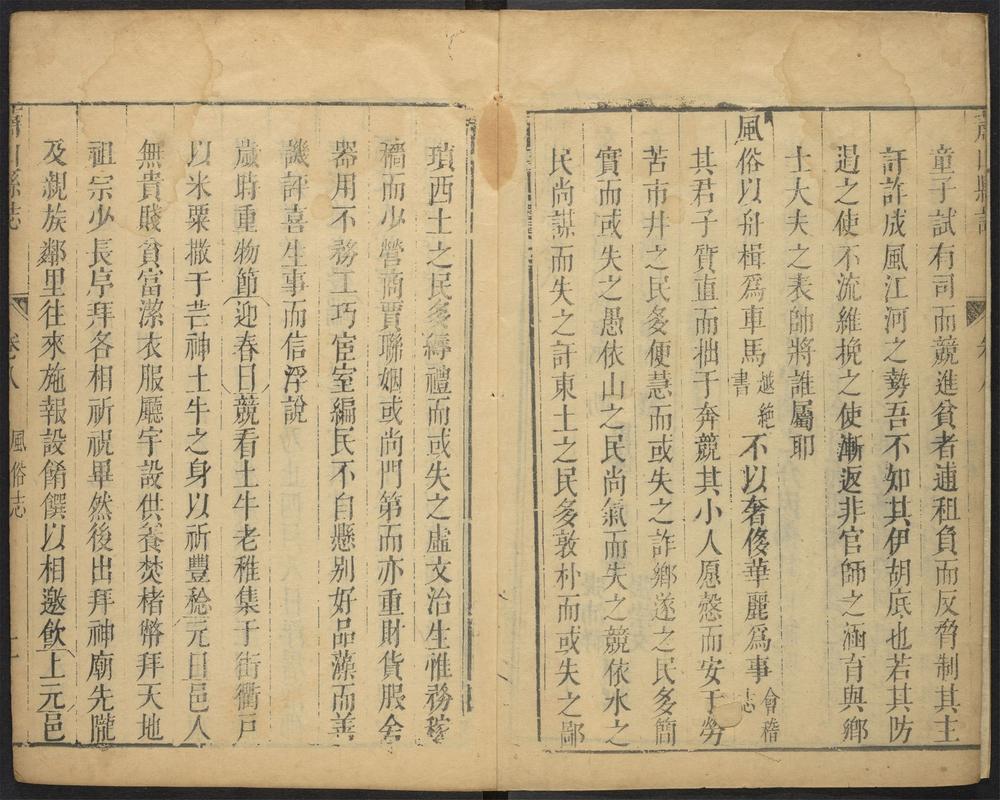 童子試有司而競進貧者逋租負而反脅制其主
訐詐成風江河之勢吾不如其伊胡底也若其防
遏之使不流維挽之使漸返非官師之涵育與鄉
士大夫之表師將誰屬耶
風俗以舟楫爲車馬越絶書不以奢侈華麗爲事會稽志
其君子質直而拙于奔競其小人愿慤而安于勞
苦市井之民多便慧而或失之詐鄉遂之民多簡
實而或失之愚依山之民尚氣而失之競依水之
民尚謀而失之訐東土之民多敦朴而或失之鄙
瑣西土之民多縟禮而或失之虛文治生惟務稼
穡而少營商賈聯姻或尚門第而亦重財貨服舍
器用不務工巧宦室編民不自懸别好品藻而善
譏評喜生事而信浮說
歲時重物節迎春日競看土牛老稚集于街衢戸
以米粟撒于芒神土牛之身以祈豐稔元日邑人
無貴賤貧富潔衣服廳宇設供養焚楮幣拜天地
祖宗少長序拜各相祈祝畢然後出拜神廟先隴
及親族鄰里往來施報設餚饌以相邀飲上元邑
蕭山縣志
卷八
風俗志